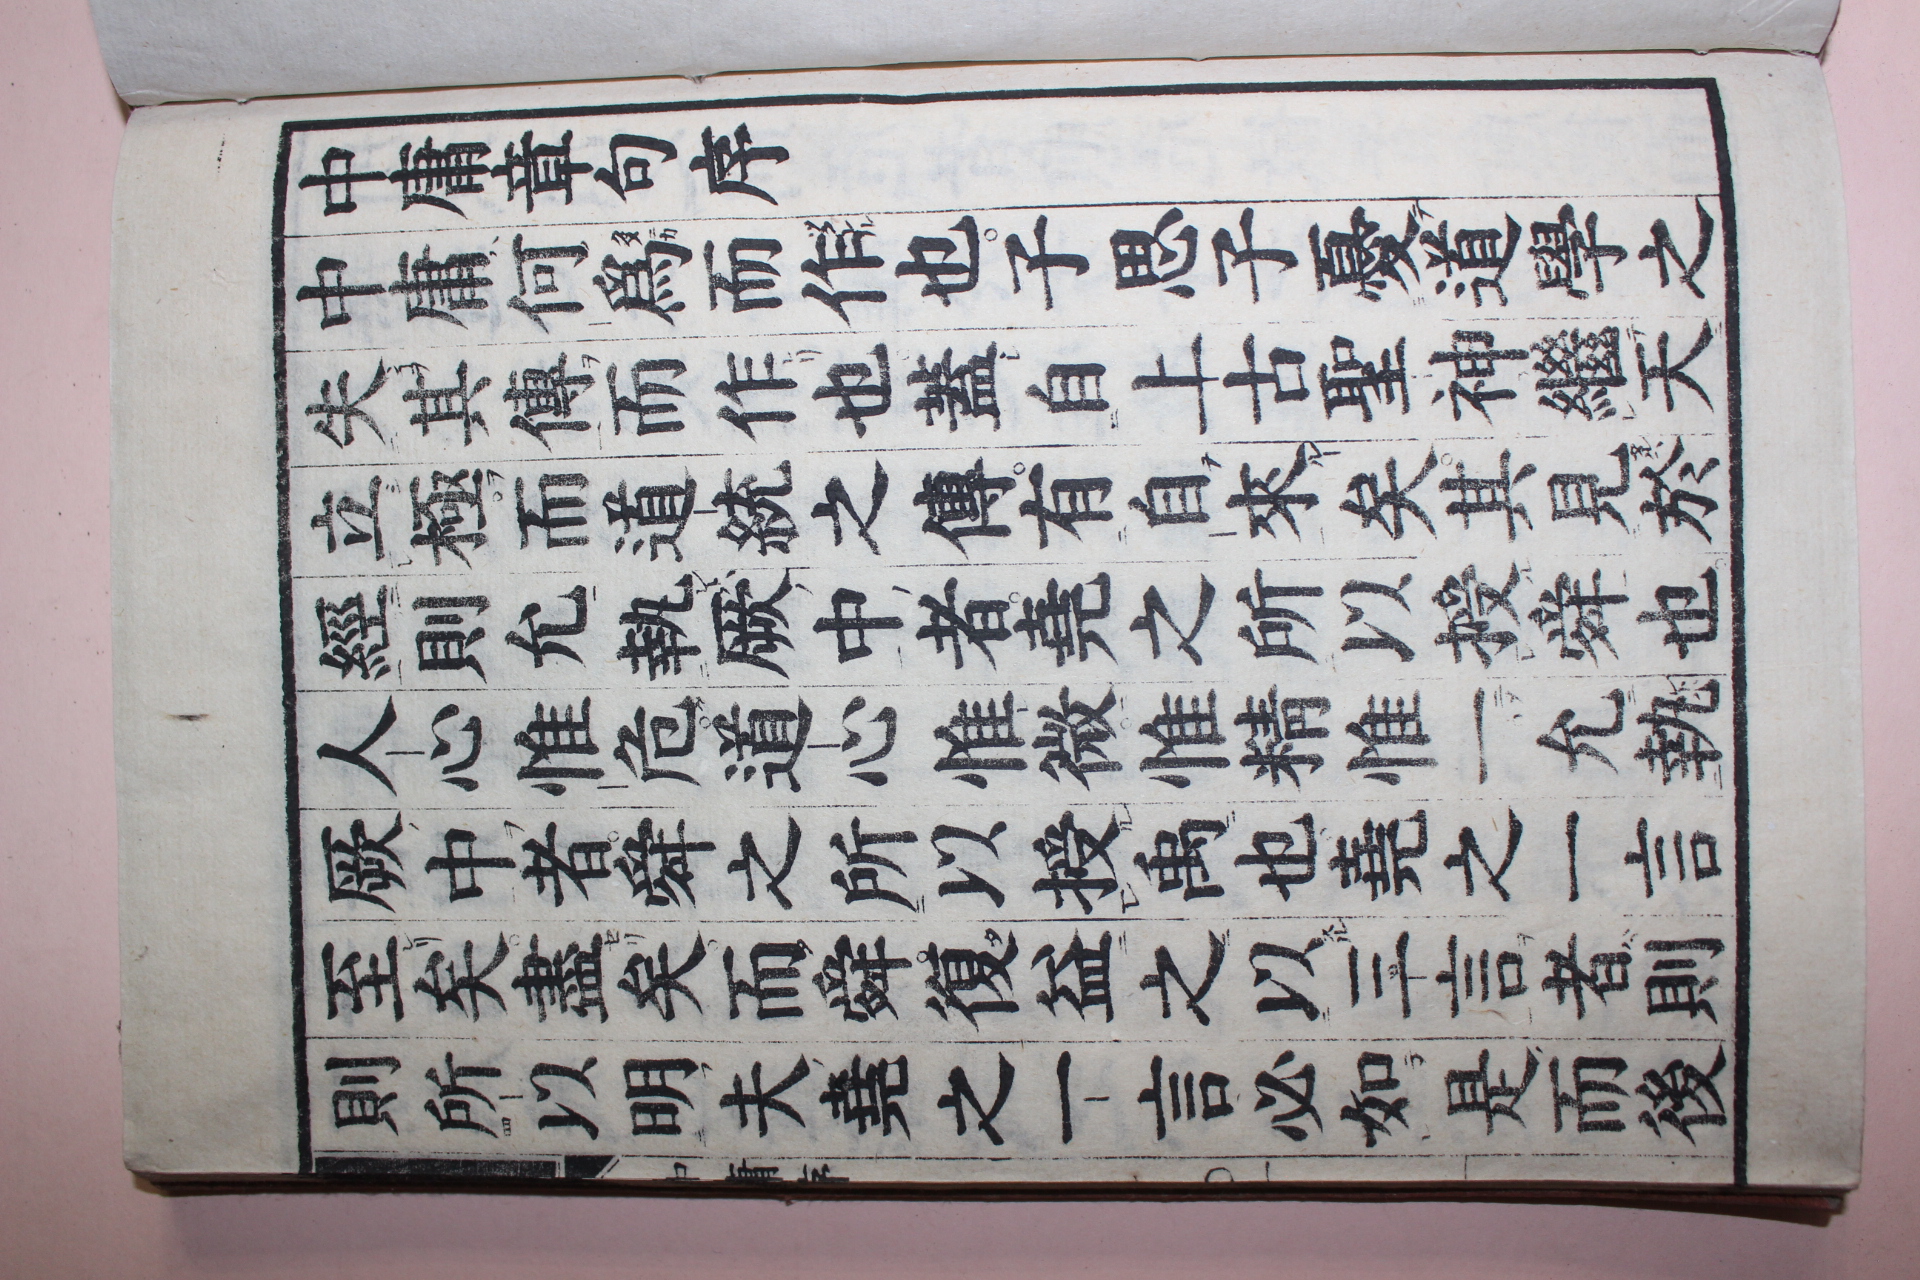 中庸章句序
中庸何爲而作也子思子憂道學之
失其傳而作也蓋自上古聖神繼天
立極而道統之傳有自來矣其見於
經則允執厥中者堯之所以授舜也
人心惟危道心惟微惟精惟一允執
厥中者舜之所以授禹也堯之一言
至矣盡矣而舜復益之以三言者則
則所以明夫堯之一言必如是而後
中庸序